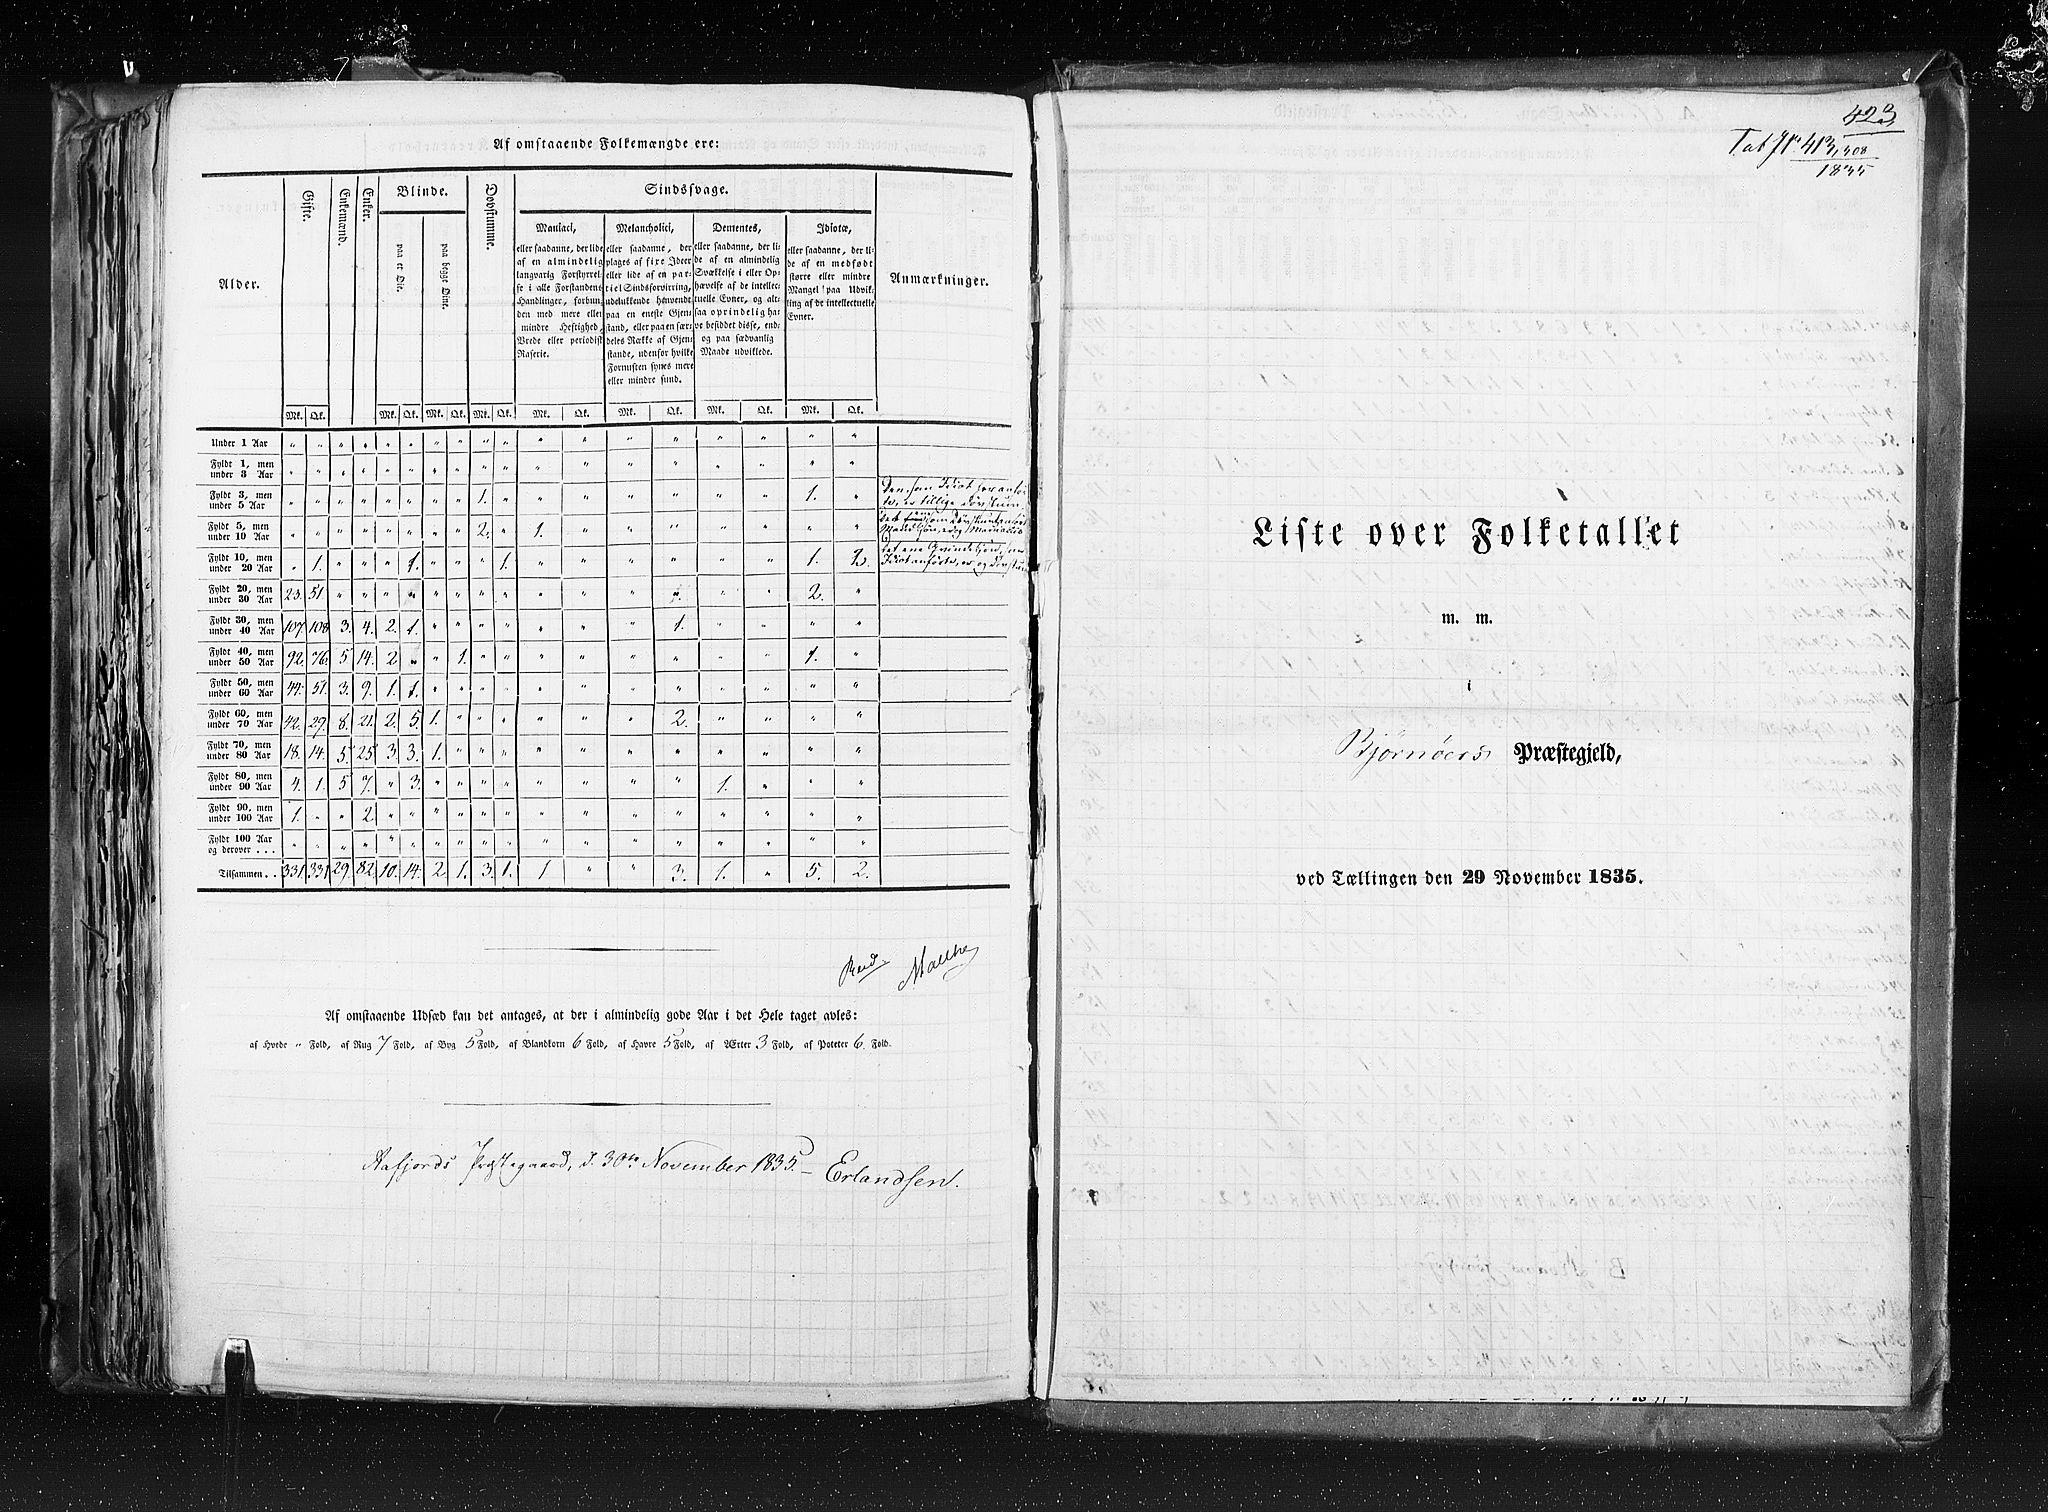 Af omstaaende Folkemængde ere:
Alder. Gifte. Enkemænd. Enker. Blinde. Døvstumme. Sindssvage. Anmærkninger.
paa et Øie. paa begge Øine.
Maniaci, Melancholici, Dementes, Idiotæ,
eller saadanne, der lide af en almindelig langvarig Forstyrrelse i alle Forstandens Handlinger, forbunden med mere eller mindre Heftighed, Vrede eller periodisk Raserie.
eller saadanne, der plages af fixe Ideer eller lide af en partiel Sindsforvirring, udelukkende henvendt paa en eneste Gjenstand, eller paa en særdeles Række af Gjenstande, udenfor hvilke Fornuften synes mere eller mindre sund.
eller saadanne, der lide af en almindelig Svækkelse i eller Ophævelse af de intellectuelle Evner, og altsaa oprindelig have besiddet disse, endog paa sædvanlig Maade udviklede.
eller saadanne, der lide af en medfødt større eller mindre Mangel paa Udvikling af de intellectuelle Evner.
Mk. Qk. Mk. Qk. Mk. Qk. Mk. Qk. Mk. Qk. Mk. Qk. Mk. Qk. Mk. Qk.
Under 1 Aar " " " " " " " " " " " " " " " " " "
Fyldt 1, men under 3 Aar " " " " " " " " " " " " " " " " " "
Fyldt 3, men under 5 Aar " " " " " " " " 1. " " " " " " " 1. " Den som Idiot her anført, er tillige døvstum.
Fyldt 5, men under 10 Aar " " " " " " " " 2. " 1. " " " " " " "
Fyldt 10, men under 20 Aar " 1. " " " 1. " " " 1. " " " " " " 1. 2. Idiot anførte, er og døvstum
Fyldt 20, men under 30 Aar 23. 51. " " " " " " " " " " " " " " 2. "
Fyldt 30, men under 40 Aar 107. 108 3. 4. 2. 1. " " " " " " " 1. " " " "
Fyldt 40, men under 50 Aar 92. 76. 5 14. 2. " " 1. " " " " " " " " 1. "
Fyldt 50, men under 60 Aar 44. 51. 3. 9. 1. 1. " " " " " " " " " " " "
Fyldt 60, men under 70 Aar 42. 29. 8. 21. 2. 5. 1. " " " " " " 2. " " " "
Fyldt 70, men under 80 Aar 18. 14. 5. 25 3. 3. 1. " " " " " " " " " " "
Fyldt 80, men under 90 Aar 4. 1. 5 7. " 3. " " " " " " " " 1. " " "
Fyldt 90, men under 100 Aar 1. " " 2. " " " " " " " " " " " " " "
Fyldt 100 Aar og derover . . . " " " " " " " " " " " " " " " " " "
Tilsammen . . 331. 331 29. 82. 10. 14. 2. 1. 3. 1. 1 " " 3. 1. " 5. 2.
Malthe
Af omstaaende Udsæd kan det antages, at der i almindelig gode Aar i det Hele taget avles:
af Hvede " Fold, af Rug 7 Fold, af Byg 5 Fold, af Blandkorn 6 Fold, af Havre 5 Fold, af Ærter 3 Fold, af Poteter 6 Fold.
Aafjords Præstegaard, d. 30te November 1835. – Erlandsen.
423
Tab No 413, 408
1835
Liste over Folketallet
m. m.
i
Bjørnøers Præstegjeld,
ved Tællingen den 29 November 1835.